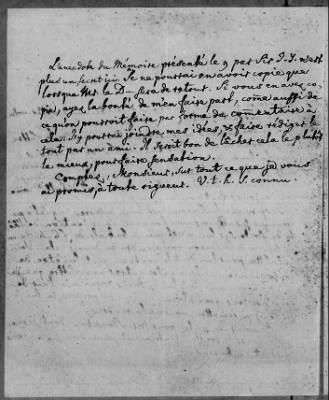 L'anecdote du Mémoire présenté le 9 par Sir J. Y. n'est
plus un secret ici. Je ne pourrai en avoir copie que
lorsque Mr. le D— sera de retour. Si vous en avez co-
pie, ayez la bonté de m'en faire part, come aussi de
ce qu'on pourroit faire par forme de comentaire à
cela. J'y pourrai joindre mes idées, & faire rédiger le
tout par un ami. Il seroit bon de lâcher cela le plutôt
le mieux, pour faire sensation.
Comptez, Monsieur, sur tout ce que je vous
ai promis, à toute rigueur. V. t. h. S. connu